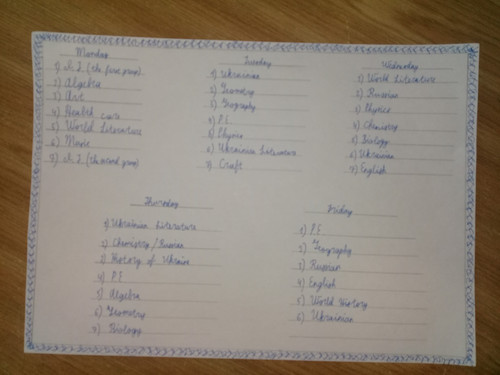 Monday
1) I.T (the first group)
2) Algebra
3) Art
4) Health care
5) World Literature
6) Music
7) I.T (the second group)
Tuesday
1) Ukrainian
2) Geometry
3) Geography
4) P.E
5) Physics
6) Ukrainian Literature
7) Craft
Wednesday
1) World Literature
2) Russian
3) Physics
4) Chemistry
5) Biology
6) Ukrainian
7) English
Thursday
1) Ukrainian Literature
2) Chemistry / Russian
3) History of Ukraine
4) P.E
5) Algebra
6) Geometry
7) Biology
Friday
1) P.E
2) Geography
3) Russian
4) English
5) World History
6) Ukrainian